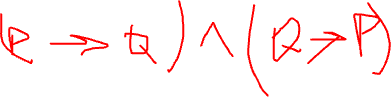 (P → Q) ∧ (Q → P)